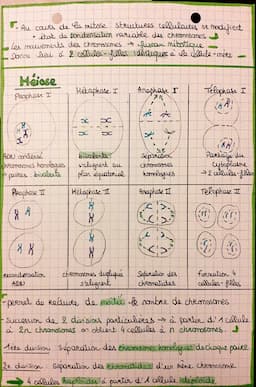 Au cours de la mitose structures cellulaires se modifient
• état de condensation variable du chromosomes
les mouvements des chromosomes → fuseau mitotique
donne lieu à 2 cellules-filles identiques à la cellule-mère
Méiose
Prophase I Métaphase I Anaphase I Télophase I
ADN condensé bivalents Séparation Partage du
chromosomes homologues s'alignent au chromosomes cytoplasme
paires bivalents plan équatorial homologues → 2 cellules-filles
Prophase II Métaphase II Anaphase II Télophase II
condensation chromosomes dupliqués Séparation des Formation 4
ADN s'alignent chromatides cellules-filles
permet de réduire de moitié le nombre de chromosomes
Succession de 2 divisions particulières → à partir d'1 cellule
à 2n chromosomes on obtient 4 cellules à n chromosomes.
1ère division Séparation des chromosomes homologues de chaque paire
2e division Séparation des chromatides d'un même chromosome
→ 4 cellules haploïdes à partir d'1 cellule diploïde